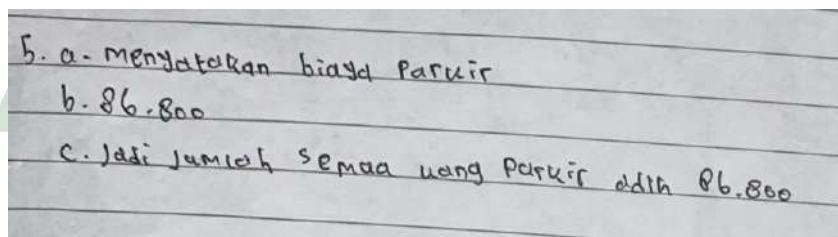 5. a. Menyatakan biaya Parkir
b. 86.800
c. Jadi Jumlah semua uang Parkir adlh 86.800